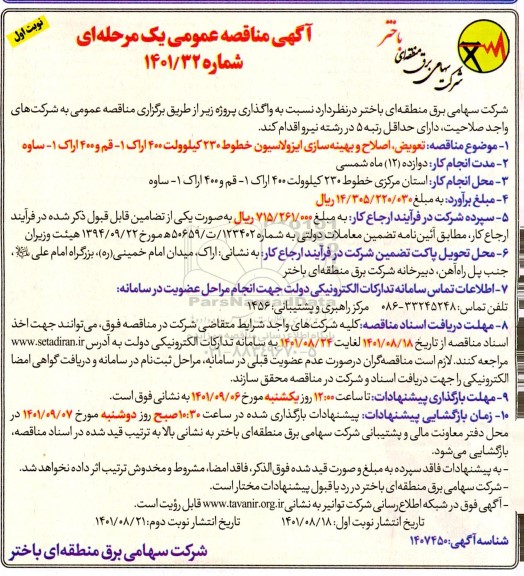 نوبت اول
باختر
شرکت سهامی برق منطقه‌ای
آگهی مناقصه عمومی یک مرحله‌ای
شماره ۱۴۰۱/۳۲
شرکت سهامی برق منطقه‌ای باختر در نظر دارد نسبت به واگذاری پروژه زیر از طریق برگزاری مناقصه عمومی به شرکت‌های
واجد صلاحیت، دارای حداقل رتبه ۵ در رشته نیرو اقدام کند.
۱- موضوع مناقصه: تعویض، اصلاح و بهینه‌سازی ایزولاسیون خطوط ۲۳۰ کیلوولت ۴۰۰ اراک ۱- قم و ۴۰۰ اراک ۱- ساوه
۲- مدت انجام کار: دوازده (۱۲) ماه شمسی
۳- محل انجام کار: استان مرکزی خطوط ۲۳۰ کیلوولت ۴۰۰ اراک ۱- قم و ۴۰۰ اراک ۱- ساوه
۴- مبلغ برآورد: به مبلغ ۱۴/۳۰۵/۲۲۰/۰۳۰ ریال
۵- سپرده شرکت در فرآیند ارجاع کار: به مبلغ ۷۱۵/۲۶۱/۰۰۰ ریال به‌صورت یکی از تضامین قابل قبول ذکر شده در فرآیند
ارجاع کار، مطابق آئین‌نامه تضمین معاملات دولتی به شماره ۱۲۳۴۰۲/ت۵۰۶۵۹ه مورخ ۱۳۹۴/۰۹/۲۲ هیئت وزیران
۶- محل تحویل پاکت تضمین شرکت در فرآیند ارجاع کار: به نشانی: اراک، میدان امام خمینی (ره)، بزرگراه امام علی
جنب پل راه‌آهن، دبیرخانه شرکت برق منطقه‌ای باختر
۷- اطلاعات تماس سامانه تدارکات الکترونیکی دولت جهت انجام مراحل عضویت در سامانه:
تلفن تماس: ۳۳۲۴۵۲۴۸-۰۸۶ مرکز راهبری و پشتیبانی: ۱۴۵۶
۸- مهلت دریافت اسناد مناقصه: کلیه شرکت‌های واجد شرایط متقاضی شرکت در مناقصه فوق، می‌توانند جهت اخذ
اسناد مناقصه از تاریخ ۱۴۰۱/۰۸/۱۸ لغایت ۱۴۰۱/۰۸/۲۴ به سامانه تدارکات الکترونیکی دولت به آدرس www.setadiran.ir
مراجعه کنند. لازم است مناقصه‌گران درصورت عدم عضویت قبلی در سامانه، مراحل ثبت‌نام در سامانه و دریافت گواهی امضا
الکترونیکی را جهت دریافت اسناد و شرکت در مناقصه محقق سازند.
۹- مهلت بارگذاری پیشنهادات: تا ساعت ۱۲:۰۰ روز یکشنبه مورخ ۱۴۰۱/۰۹/۰۶ به نشانی فوق است.
۱۰- زمان بازگشایی پیشنهادات: پیشنهادات بارگذاری شده در ساعت ۱۰:۳۰ صبح روز دوشنبه مورخ ۱۴۰۱/۰۹/۰۷ در
محل دفتر معاونت مالی و پشتیبانی شرکت سهامی برق منطقه‌ای باختر به نشانی بالا به ترتیب قید شده در اسناد مناقصه،
بازگشایی می‌شود.
- به پیشنهادات فاقد سپرده به مبلغ و صورت قید شده فوق‌الذکر، فاقد امضا، مشروط و مخدوش ترتیب اثر داده نخواهد شد.
- شرکت سهامی برق منطقه‌ای باختر در رد یا قبول پیشنهادات مختار است.
- آگهی فوق در شبکه اطلاع‌رسانی شرکت توانیر به نشانی www.tavanir.org.ir قابل رؤیت است.
تاریخ انتشار نوبت اول: ۱۴۰۱/۰۸/۱۸ تاریخ انتشار نوبت دوم: ۱۴۰۱/۰۸/۲۱
شناسه آگهی: ۱۴۰۷۴۵۰
شرکت سهامی برق منطقه‌ای باختر